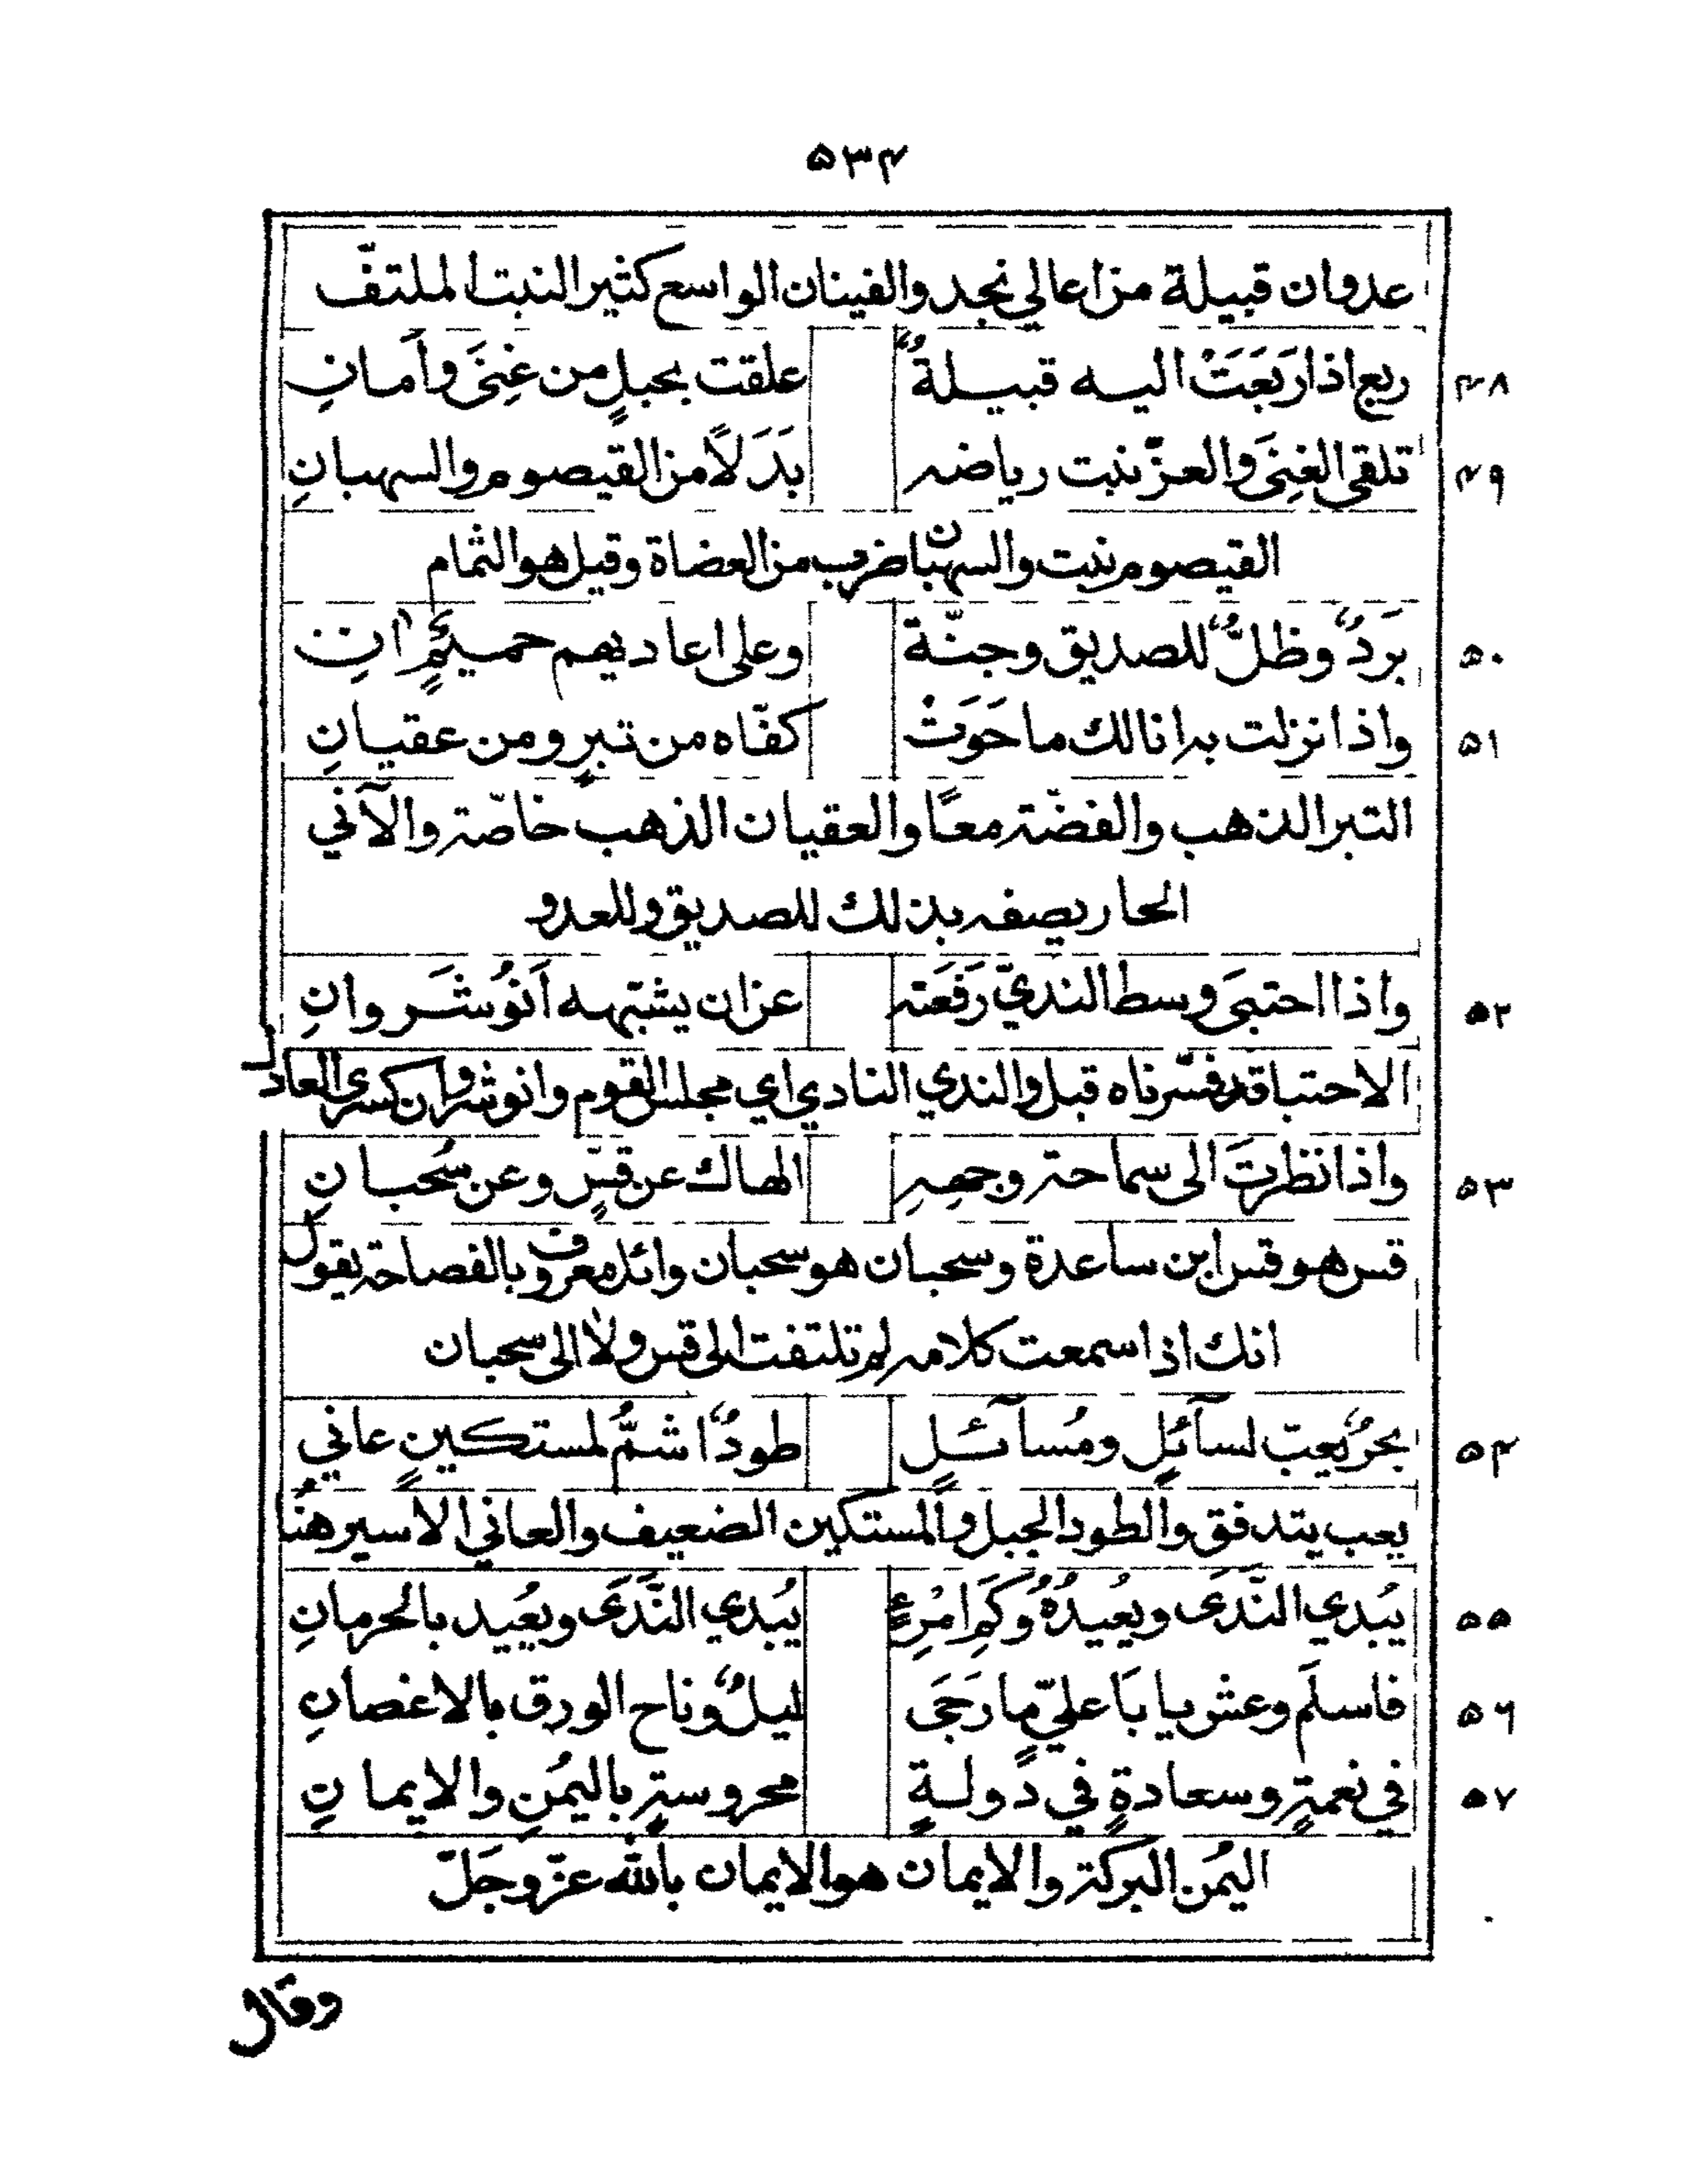 ۵۳۴
عدوان قبيلة من اعالي نجد والفينان الواسع كثير النبت الملتفّ
۴۸ ربع اذا رَبَعَتْ اليه قبيلةٌ علقت بحبلٍ من غِنَى وأمانِ
۴۹ تلقى الغِنَى والعزّ نبت رياضه بَدَلًا من القيصوم والسهبانِ
القيصوم نبت والسهبان ضرب من العضاة وقيل هو الثمام
۵۰ بَردٌ وظلٌّ للصديق وجنّة وعلى اعاديهم حميئمٍ انِ
۵۱ واذا نزلت به انالك ما حَوَتْ كفّاه من تبرٍ ومن عقيانِ
التبر الذهب والفضّة معًا والعقيان الذهب خاصّة والآني
الحار يصفه بذلك للصديق وللعدو
۵۲ واذا احتبَى وسط النديّ رَفَعته عن ان يشبّهه اَنوُشَروانِ
الاحتبا قد فسّرناه قبل والندي النادي اي مجلس القوم وانوشروان كسرى العادل
۵۳ واذا نظرتَ الى سماحة وجههِ الهاك عن قسٍّ وعن سُحبانِ
قس هو قس ابن ساعدة وسحبان هو سحبان وائل معروف بالفصاحة يقول
انك اذا سمعت كلامه لم تلتفت الى قس ولا الى سحبان
۵۴ بحرٌ يعبّ لسآئلٍ ومُسآئل طودٌ اشمُّ لمستكينٍ عاني
يعب يتدفق والطود الجبل والمستكين الضعيف والعاني الاسير هنُا
۵۵ يُبدي النَّدَى ويعُيدُهُ وكَمِ امْرِءٍ يُبدي النَّدَى ويعُيد بالحرمانِ
۵۶ فاسلَم وعش يا بَا عليّ ما رَجَى ليلٌ وناح الورق بالاغصانِ
۵۷ في نعمةٍ وسعادةٍ في دولةٍ محروسةٍ باليمُنِ والايمانِ
اليمُن البركة والايمان هو الايمان بالله عزّ وجَلّ
وقال